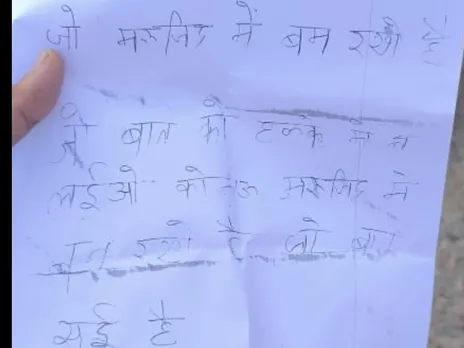 जो मस्जिद में बम रखो है
जे बात को हलके मे न
लईओ कोनऊ मस्जिद मे
बम रखो है जो बात
सई है